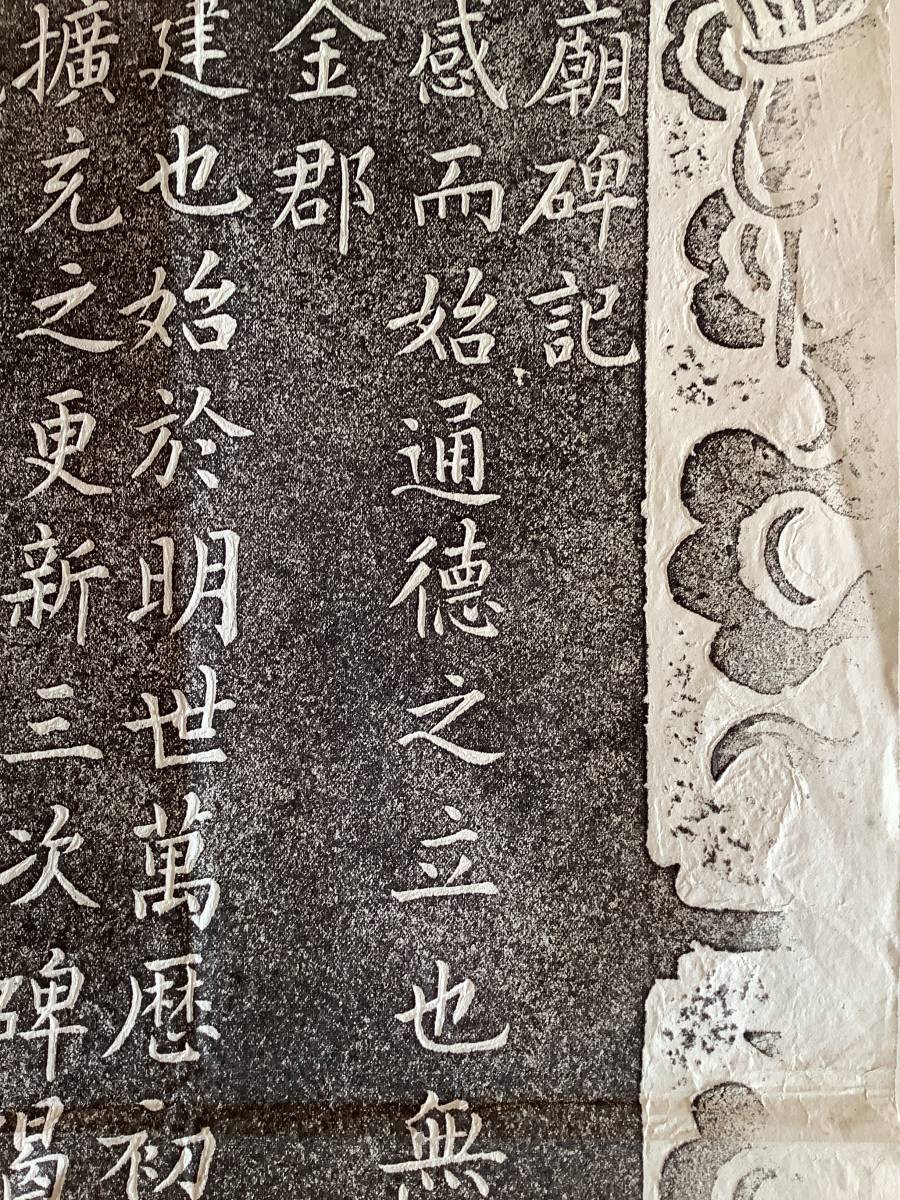 廟碑記
感而始通德之立也無
金郡
建也始於明世萬歷初
擴充之更新三次碑